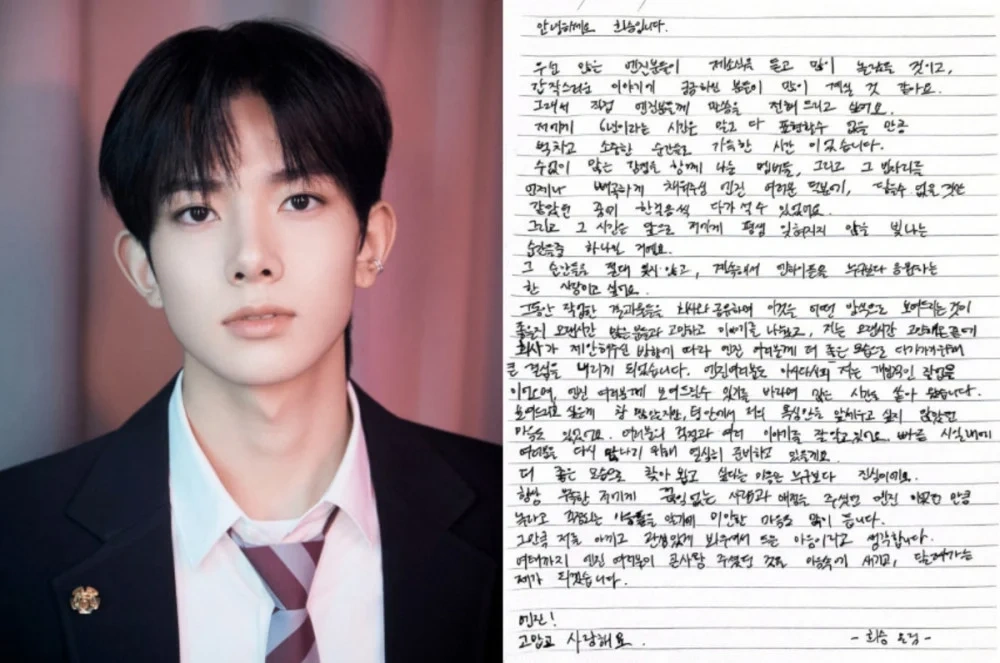 안녕하세요 희승입니다.
우선 많은 엔진분들이 제소식을 듣고 많이 놀랐을 것이고,
갑작스러운 이야기에 궁금하신 분들이 많이 계실 것 같아요.
그래서 직접 엔진분들께 말씀을 전해 드리고 싶어요.
저에게 6년이라는 시간은 말로 다 표현할수 없을 만큼
벅차고 소중한 순간들로 가득한 시간 이었습니다.
수없이 많은 감정을 함께 나눈 멤버들, 그리고 그 빈자리를
언제나 빼곡하게 채워주신 엔진 여러분 덕분에, 닿을수 없을 것만
같았던 꿈에 한걸음씩 다가 설 수 있었어요.
그리고 그 시간은 앞으로 저에게 평생 잊혀지지 않을 빛나는
순간들중 하나일 거에요.
그 순간들을 절대 잊지 않고, 계속해서 엔하이픈을 누구보다 응원하는
한 사람이고 싶어요.
그동안 작업한 결과물들을 회사와 공유하며 이것을 어떤 방식으로 보여드리는것이
좋을지 오랜시간 많은분들과 고민하고 이야기를 나눴고, 저는 오랜시간 고민해온끝에
회사가 제안해주신 방향에 따라 엔진 여러분께 더 좋은 모습으로 다가가기위해
큰 결심을 내리게 되었습니다. 엔진여러분도 아시다시피 저는 개인적인 작업물
이 있으며, 엔진 여러분께 보여드릴수 있기를 바라며 많은 시간을 쏟아 왔습니다.
보여드리고 싶은게 참 많았지만, 팀 안에서 저의 욕심만을 앞세우고 싶지 않았던
마음도 있었어요. 여러분의 걱정과 여러 이야기를 잘 알고 있어요. 빠른 시일내에
여러분을 다시 만나기 위해 열심히 준비하고 있을게요.
더 좋은 모습으로 찾아 뵙고 싶다는 마음은 누구보다 진심이에요.
항상 부족한 저에게 끊임 없는 사랑과 애정을 주셨던 엔진 이었던 만큼
놀라고 걱정되는 마음들을 알기에 미안한 마음도 많이 듭니다.
그만큼 저를 아끼고 관심있게 봐주셔서 드는 마음이라고 생각합니다.
여태까지 엔진 여러분이 큰사랑 주셨던 것을 마음속에 새기고, 달려가는
제가 되겠습니다.
엔진!
고맙고 사랑해요.
- 희승 올림 -